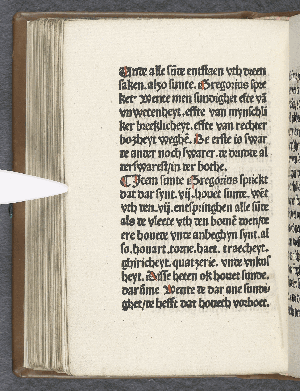 Unde alle sūde entstaen vth dreen
saken. alzo sunte. Gregorius spre
ket Wente men sundighet efte vā
vnwetenheyt. efte van mynschli
ker breeklicheyt. efte van rechter
bozheyt weghē. De erste is swar
te ander noch swarer. te drudde al
ter swarest/in ter bothe.
Item sunte Gregorius sprickt
dat dar synt. vij. houet sunte. wēt
vth ten. vij. entspringhen alle sūde
als te vleete vth ten bome wente
ere houete vnde anbeghyn synt. al
so. houart. torne. haet. traecheyt.
ghiricheyt. quatzerie. vnde vnkus
heyt. Disse heten ok houet sunde.
dar ūme Wente te dar ane sundi
ghet/te hefft dat houech vorboet.